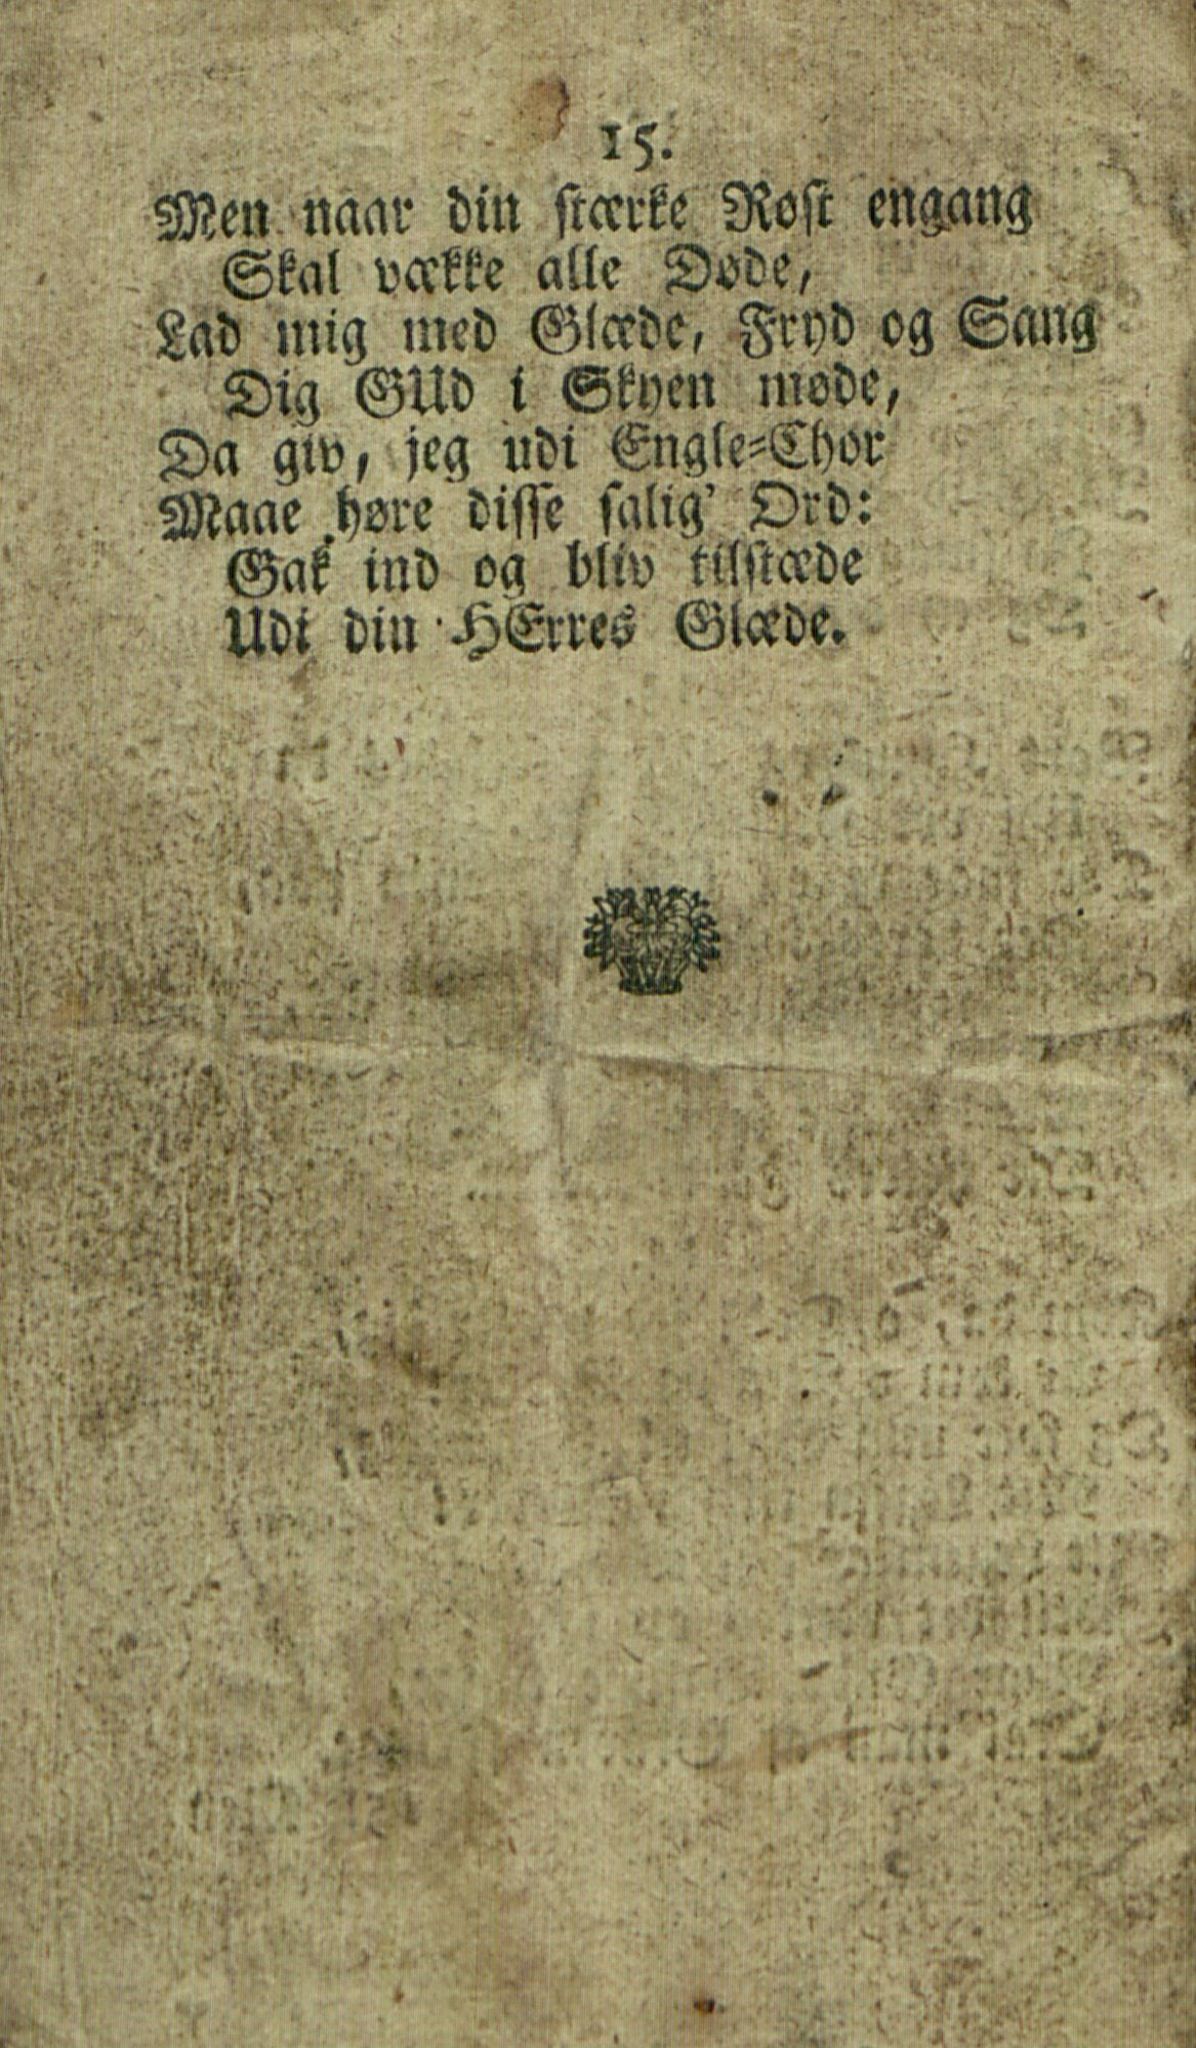 15.
Men naar din stærke Røst engang
Skal vække alle Døde,
Lad mig med Glæde, Fryd og Sang
Dig GUd i Skyen møde,
Da giv, jeg udi Engle-Chor
Maae høre disse salig' Ord:
Gak ind og bliv tilstæde
Udi din HErres Glæde.